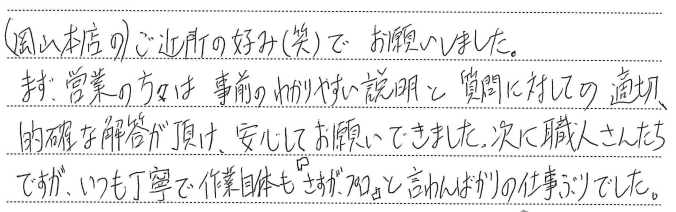 (岡山本店の)ご近所の好み(笑)で お願いしました。
まず、営業の方々は 事前のわかりやすい説明と 質問に対しての 適切、
的確な解答が頂け、安心してお願いできました。次に職人さんたち
ですが、いつも丁寧で作業自体も"さすが、プロ"と言わんばかりの仕事ぶりでした。